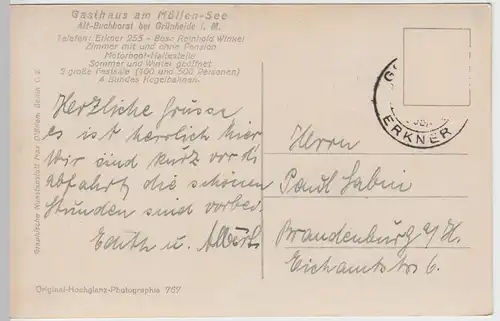 Gasthaus am Möllen-See
Alt-Buchhorst bei Grünheide i. M.
Telefon: Erkner 255 - Bes.: Reinhold Winkel
Zimmer mit und ohne Pension
Motorboot-Haltestelle
Sommer und Winter geöffnet
2 große Festsäle (100 und 500 Personen)
4 Bundes Kegelbahnen
Herzliche Grüsse
es ist herrlich hier
Wir sind kurz vor d.
Abfahrt, die schönen
Stunden sind vorbei.
Edith u.
ERKNER
Herrn
Paul
Brandenburg a/H.
6.
Original-Hochglanz-Photographie 767
Graphische Kunstanstalt Max